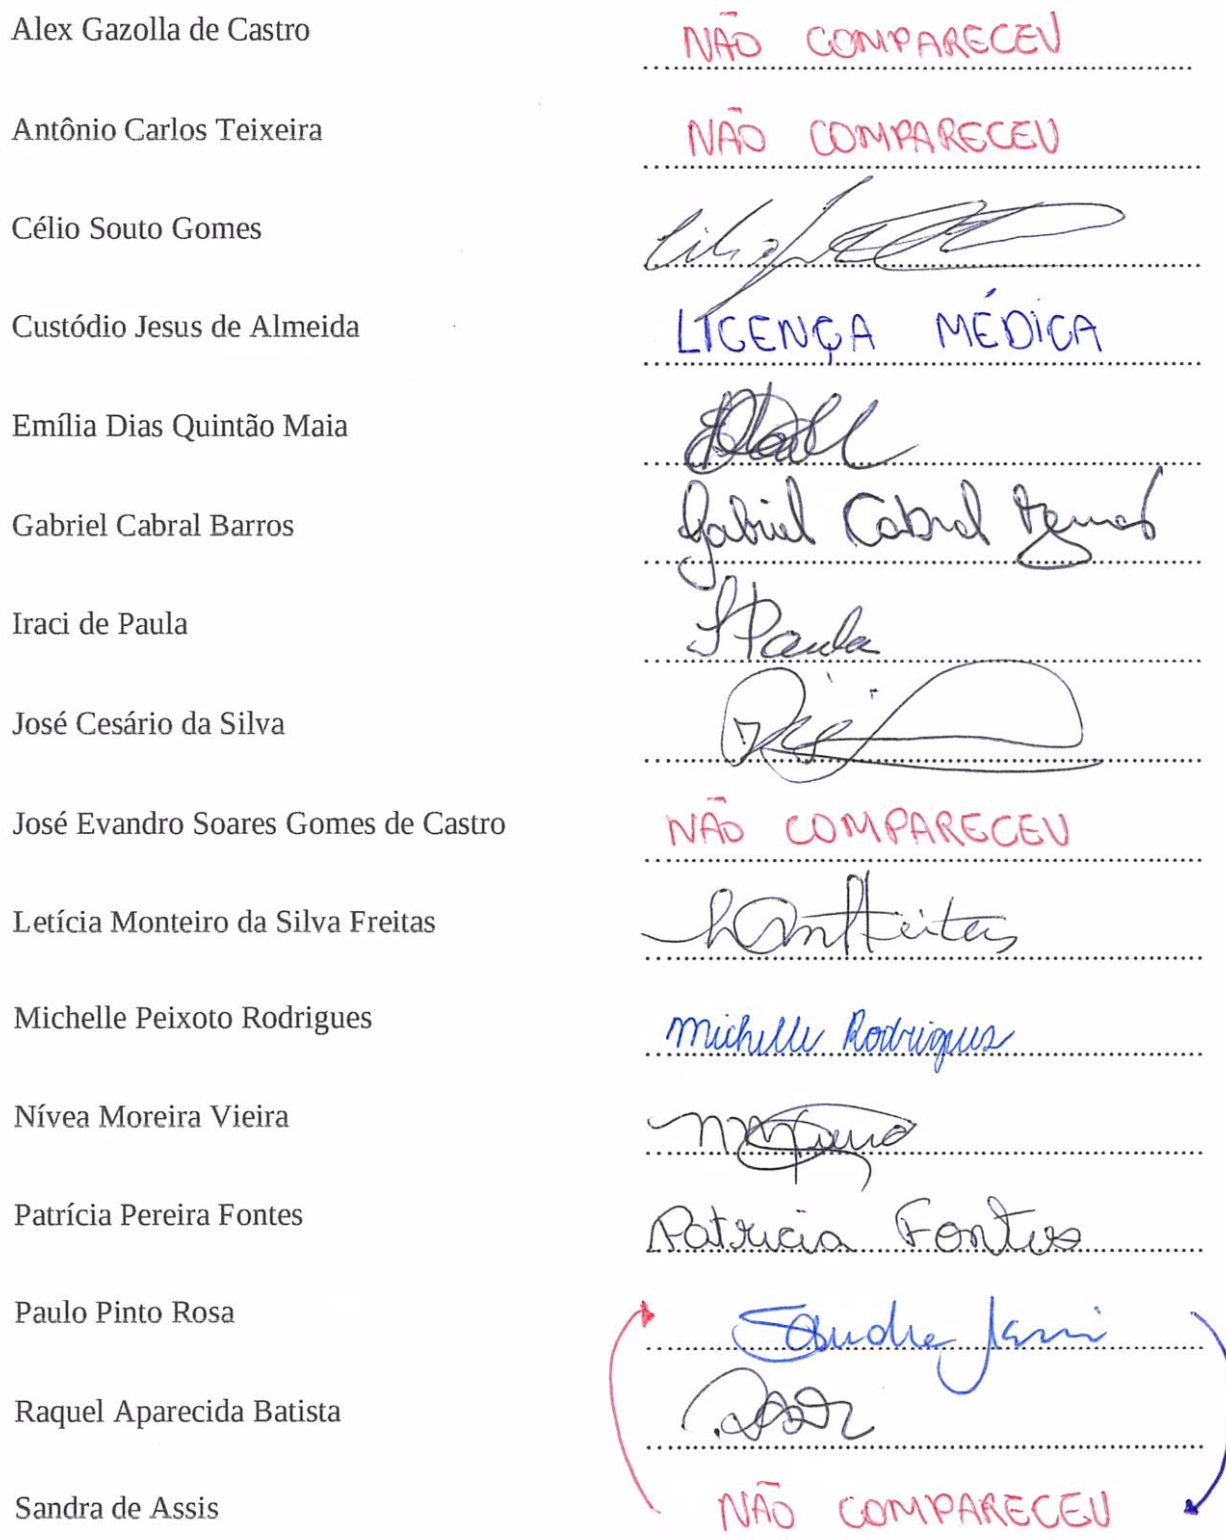 Alex Gazolla de Castro NÃO COMPARECEU
Antônio Carlos Teixeira NÃO COMPARECEU
Célio Souto Gomes
Custódio Jesus de Almeida LICENÇA MÉDICA
Emília Dias Quintão Maia
Gabriel Cabral Barros Gabriel Cabral
Iraci de Paula IPaula
José Cesário da Silva
José Evandro Soares Gomes de Castro NÃO COMPARECEU
Letícia Monteiro da Silva Freitas
Michelle Peixoto Rodrigues Michelle Rodrigues
Nívea Moreira Vieira
Patrícia Pereira Fontes Patricia Fontes
Paulo Pinto Rosa
Raquel Aparecida Batista
Sandra de Assis NÃO COMPARECEU